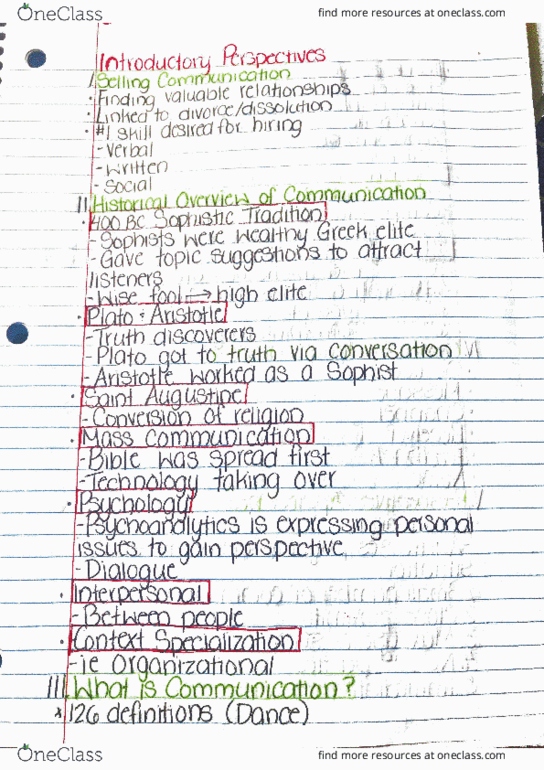 OneClass
find more resources at oneclass.com
Introductory Perspectives
I. Selling Communication
· Finding valuable relationships
· Linked to divorce/dissolution
· #1 skill desired for hiring
- Verbal
- Written
- Social
II. Historical Overview of Communication
· 400 BC Sophistic Tradition
- Sophists were wealthy Greek elite
- Gave topic suggestions to attract
listeners
- Wise fool → high elite
· Plato & Aristotle
- Truth discoverers
- Plato got to truth via conversation
- Aristotle worked as a Sophist
· Saint Augustine
- Conversion of religion
· Mass Communication
- Bible was spread first
- Technology taking over
· Psychology
- Psychoanalytics is expressing personal
issues to gain perspective
- Dialogue
· Interpersonal
- Between people
· Context Specialization
- ie Organizational
III. What is Communication?
* 126 definitions (Dance)
OneClass
find more resources at oneclass.com